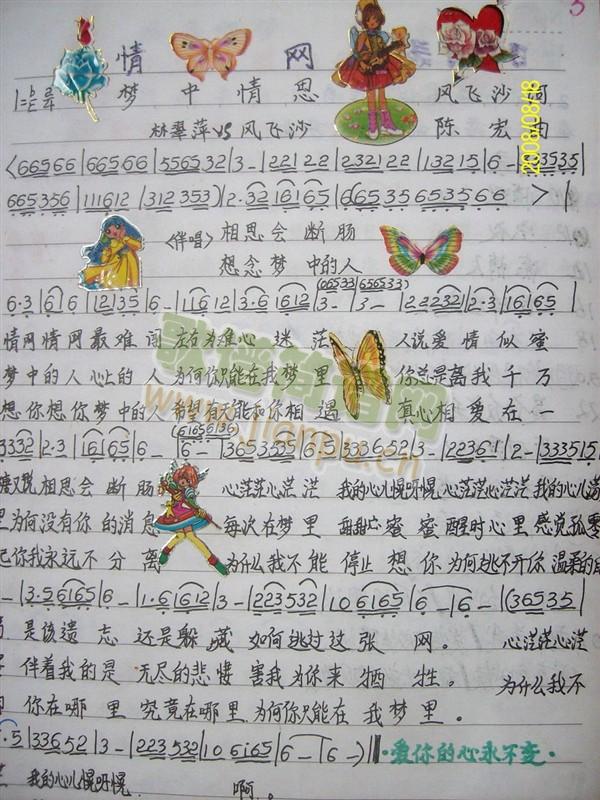 3
情 网
1=bE 2/4 梦 中 情 思 风飞沙 词
林翠萍vs风飞沙 陈 宏 曲
2008/08/18
<66566|66566|556532|3-|22|22|232|22|13215|6-|3535|
665356|111612|312353|2·32|16165|665356535 66>|
<伴唱>相思会 断肠
想念梦 中的人
(06533|656533)
6·3|6 6|1235|6-|1 1612|3·6 1612|3-|3-|22232|2·3|16165|
情网情网最难闯 左右为难心 迷 茫 人说爱 情 似 蜜
梦 中的人 心上的 人 为何你只能在我梦 里 你总是离我 千 万
想你想你梦中的人 希望有天能和你相 遇 真心相 爱 在 一
歌谱简谱网
www.jianpu.cn
(6165 6136)
3332|2·3|16165|6-|6-|3653535|615|333652|3-|2236 1|2-|333515
糖 又说 相思会 断 肠 心茫茫心茫 茫 我的心儿慌呀慌 心茫茫心茫茫 我的心儿
里 为何没有你 的 消息 每次在梦 里 甜甜 蜜 蜜 醒时心里 感觉 孤零
起 你我永远不 分 离 为什么 我不 能 停止 想 你 为何 逃不开你 温柔的
-|3·56165|6-|1·61612|3-|223532|10 6165|6-|6-|(36535|
是该遗 忘 还是躲 藏 如何 逃过 这 张 网。 心茫茫心茫
伴着我的是 无尽的悲 凄 害我 为你 来 牺 牲。 为什么我不
你在哪 里 究竟在哪里 为何你只能在 我梦 里。
·5|33652|3-|223532|10 6165|6-|6-)‖爱你的心永不变·
我的心儿慌呀慌 啊。